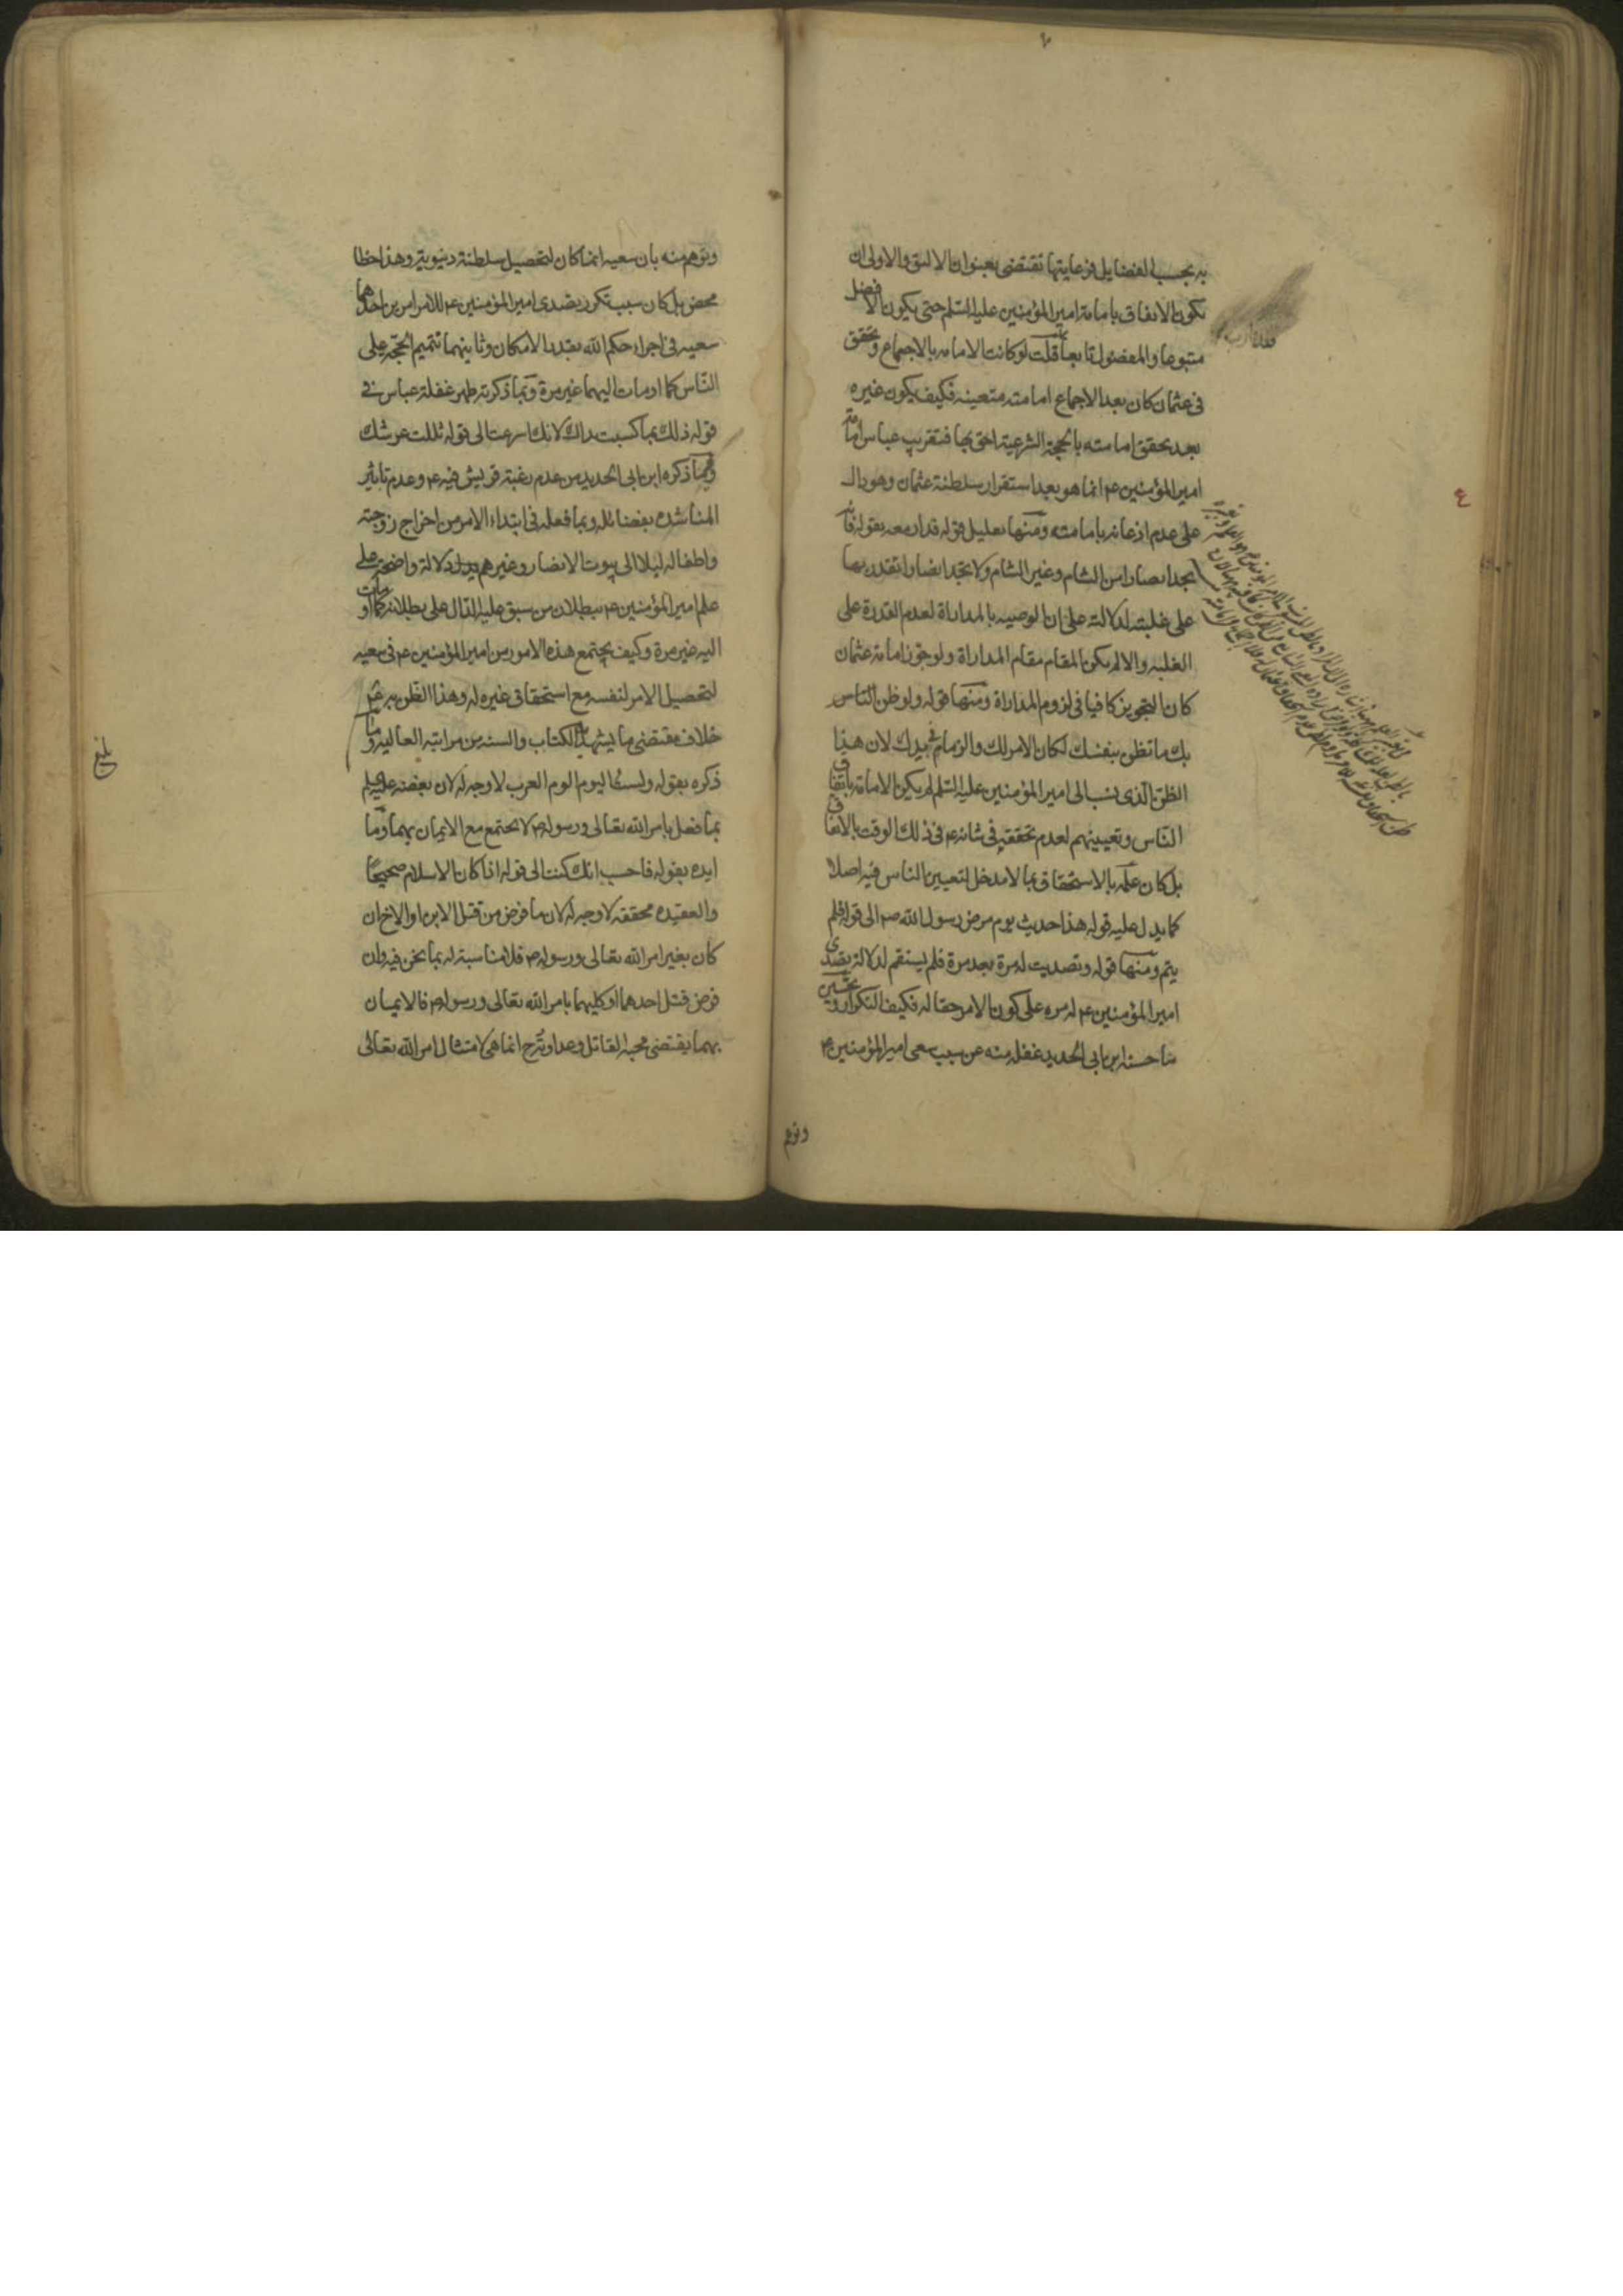 به بحسب الفضايل فرعايتها تقتضى بعنوان الاليق والاولى ان
تكون الاتفاق بامامة امير المؤمنين عليه السلم حتى يكون الافضل
متبوعا والمفضول تابعا قلت لو كانت الامامه بالاجماع وتحقق
فى عثمان كان بعد الاجماع امامته متعينه فكيف يكون غيره
بعد تحقق امامته بالحجة الشرعية احق بها فتقريب عباس امامة
امير المؤمنين ع انما هو بعد استقرار سلطنة عثمان وهو دال
على عدم اذعانه بامامته ومنها تعليل قوله قدار معه بقوله فانه
يجد انصارا من الشام وغير الشام ولا تجد انصارا تقدر بها
على غلبته لدلالته على ان الوصيه بالمداراة لعدم القدرة على
الغلبه والا لم يكن المقام مقام المداراة ولو جوز امامة عثمان
كان التجويز كافيا فى لزوم المداراة ومنها قوله ولو ظن الناس
بك ما تظن بنفسك لكان الامر لك والزمام فى يدك لان هذا
الظن الذى نسب الى امير المؤمنين عليه السلم لم يكن الامامة باتفاق
الناس وتعيينهم لعدم تحققه فى شانه ع فى ذلك الوقت بالاتفاق
بل كان علمه بالاستحقاق بما لا مدخل لتعيين الناس فيه اصلا
كما يدل عليه قوله هذا حديث يوم مرض رسول الله ص الى قوله فلم
يتم ومنها قوله وتصديت له مرة بعد مرة فلم يستقم لدلالة تصدى
امير المؤمنين ع له مره على كون الامر حقا له فكيف التكرار وتحسين
ما حسنه ابن ابى الحديد غفله منه عن سبب سعى امير المؤمنين ع
وتوهم
وتوهم منه بان سعيه انما كان لتحصيل سلطنة دنيوية وهذا خطا
محض بل كان سبب تكرر تصدى امير المؤمنين ع للامر امرين احدهما
سعيه فى اجراء حكم الله بقدر الامكان وثانيهما تتميم الحجة على
الناس كما اومات اليهما غير مرة وبما ذكرته ظهر غفلة عباس فى
قوله ذلك بما كسبت يداك لانك اسرعت الى قوله ثللت عرشك
ومما ذكره ابن ابى الحديد من عدم رغبة قريش فيه ع وعدم تاثير
المناشده بفضائله وبما فعله فى ابتداء الامر من اخراج زوجته
واطفاله ليلا الى بيوت الانصار وغيرهم يدل دلالة واضحة على
علم امير المؤمنين ع ببطلان من سبق عليه الدال على بطلانه كما اومات
اليه غير مرة وكيف يجتمع هذه الامور من امير المؤمنين ع فى سعيه
لتحصيل الامر لنفسه مع استحقاق غيره له وهذا الظن به ع
خلاف مقتضى ما يشهد به الكتاب والسنه من مراتبه العاليه وما
ذكره بقوله ولست الوم العرب لا وجه له لان بغضه عليه السلم
بما فعل بامر الله تعالى ورسوله ص لا يجتمع مع الايمان بهما وما
ايده بقوله فاحسب انك كنت الى قوله اذا كان الاسلام صحيحا
والعقيده محققه لا وجه له لان ما فرض من قتل الابن او الاخ ان
كان بغير امر الله تعالى ورسوله ص فلا مناسبة له بما نحن فيه وان
فرض قتل احدهما او كليهما بامر الله تعالى ورسوله ص فالايمان
بهما يقتضى محبه القاتل انما هى لامتثال امر الله تعالى
بلغ